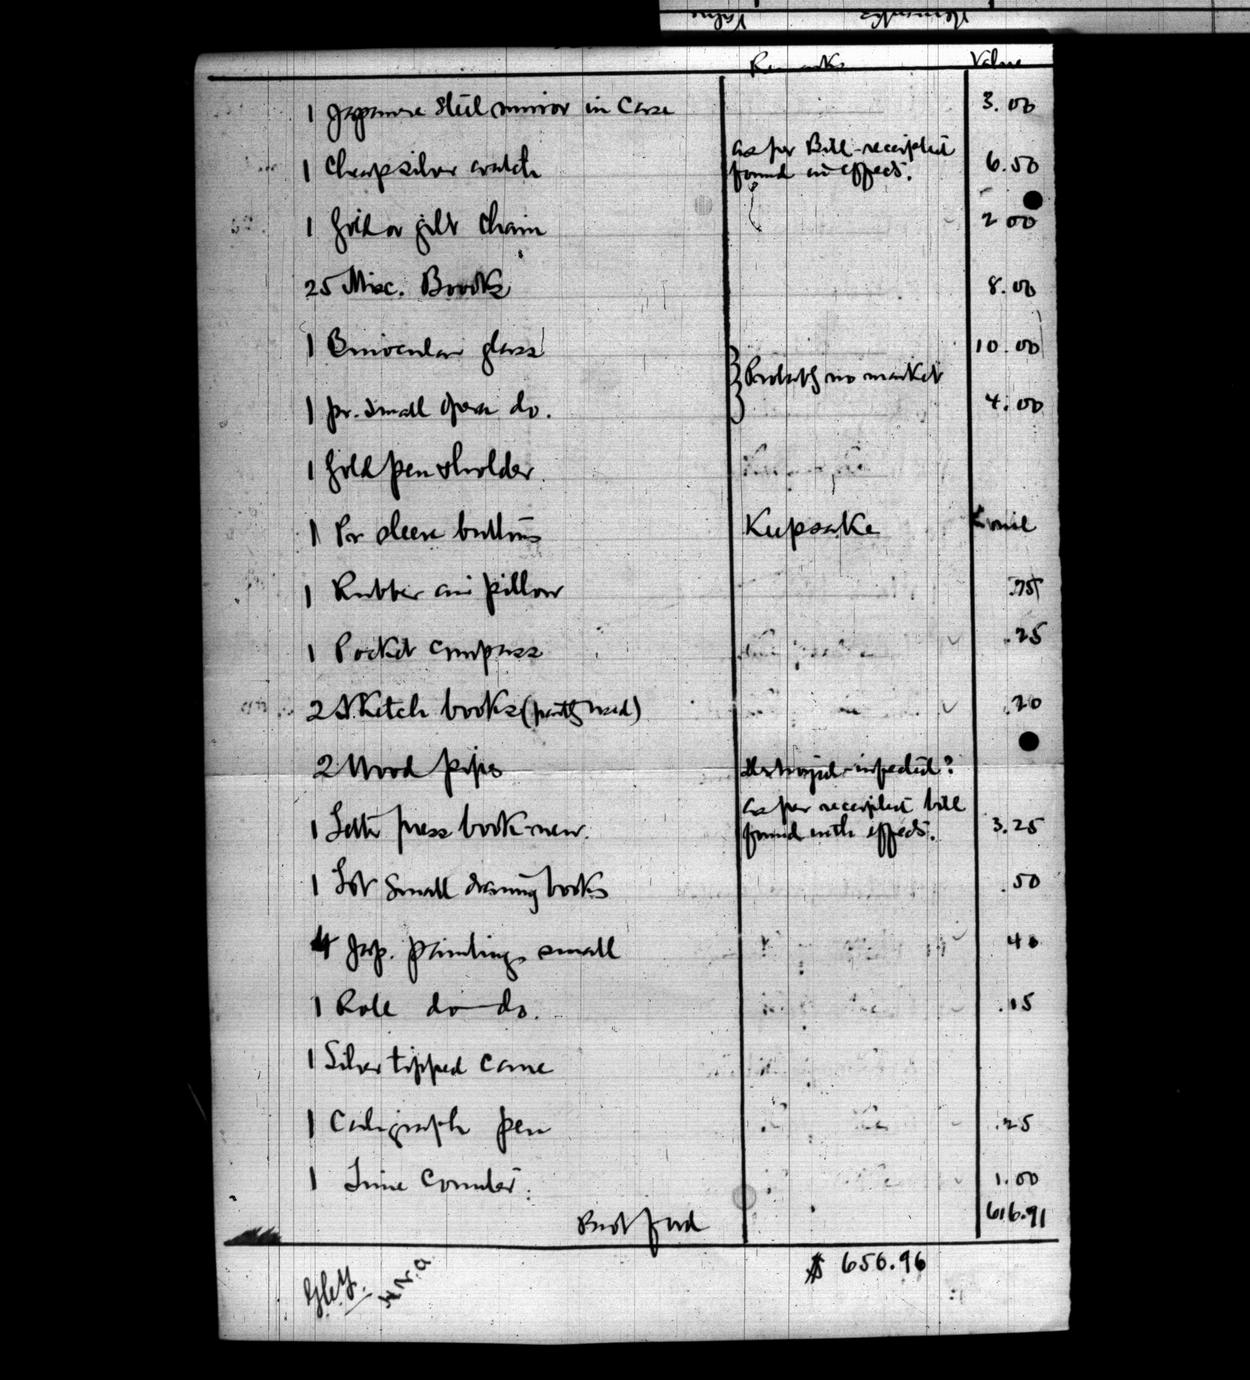 Value Remarks
Remarks Value
1 Japanese Steel mirror in Case 3.00
1 Cheap silver watch as per Bill-receipted found in effects. 6.50
1 Gold or gilt Chain 2 00
25 Misc. Books 8.00
1 Binocular glass 10.00
Probably no market
1 pr. small Opera do. 4.00
1 Gold pen & holder
1 Pr sleeve buttons Keepsake
1 Rubber air pillow .75
1 Pocket Compass .25
2 Sketch books (partly used) .20
2 Wood pipes Destroyed-infected?
1 Letter press book-new. as per receipted bill found with effects. 3.25
1 Lot Small drawing books .50
4 Jap. paintings small 40
1 Role do-do. .15
1 Silver tipped Cane
1 Caligraph pen .25
1 Time Counter. 1.00
Brot ford 616.91
$ 656.96
H.N.A.